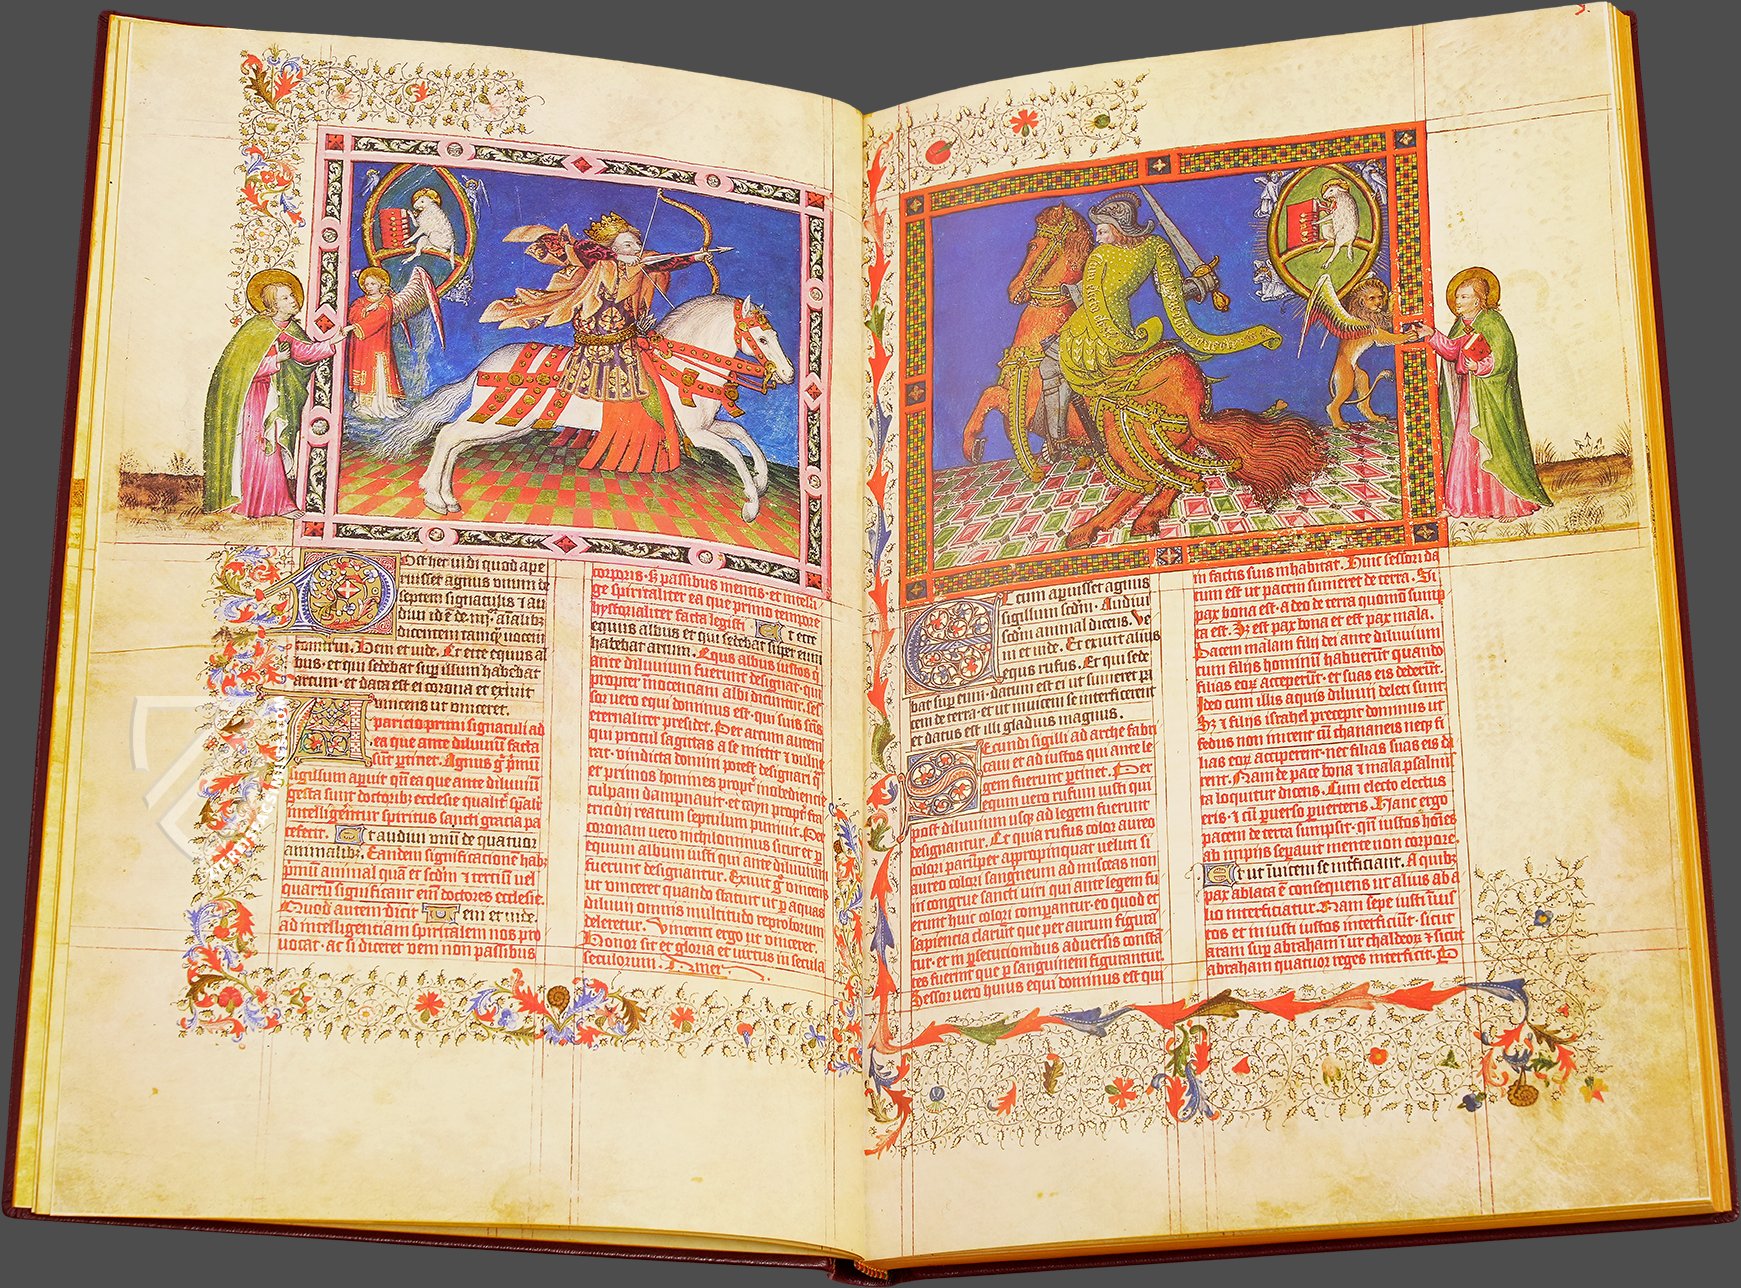 Post hec uidi quod ape
ruisset agnus unum de
septem signaculis ⁊ au
diui
dicentem tamq̃ uocem
tonitrui. Veni et uide. Et ecce equus al
bus. et qui sedebat sup̃ illum habebat
arcum. et data est ei corona et exiuit
uincens ut uinceret.
Aparicio primi signaculi ad
ea que ante diluuiũ facta
sũt ꝑtinet. Agnus
sigillum aꝑuit
gesta sunt doctorib; ecclesie
intelligentium spiritus sancti gracia pa
tefecit. Et audiui unũ de quatuor
animalib;. Eandem significationẽ hab;
pͥmũ animal quã et scd̃m ⁊ tertiũ uel
quartũ significant eni doctores ecclesie.
Quod autem dicit Veni et uide.
ad intelligentiam spiritalem nos pro
uocat. ac si diceret veni non passibus
corporis. s; passibus mentis. et intelli
ge spiritualiter ea que primo tempore
hystorialiter facta legisti. Et ecce
equus albus et qui sedebat super eum
habebat arcum. Equs albus iustos q̃
ante diluuium fuerunt designat. qui
propter ĩnocenciam albi dicuntur. ses
sor uero equi dominus est. qui suis sc̃is
eternaliter presidet. Per arcum autem
qui procul sagittas a se mittit ⁊ uulne
rat. uindicta domini potest designari
et primos homines propt̃ inobediencie
culpam dampnauit. et cayn propt̃ fra
tricidii reatum septulum puniuit. Per
coronam uero nichilominus sicut et ꝑ
equum album iusti qui ante diluuiũ
fuerunt designantur. Exiuit ḡ uincens
ut uinceret quando statuit ut ꝑ aquas
diluuii omnis multitudo reproborum
deleretur. Vincenti ergo ut uinceret.
Honor sit et gloria et uirtus in secula
seculorum. Amen.
Et cum aꝑuisset agnus
sigillum scd̃m. Audiui
scd̃m animal dicens. Ve
ni et uide. Et exiuit alius
equus rufus. Et qui sede
bat suꝑ eum. datum est ei ut sumeret pa
cem de terra. et ut inuicem se interficerent
et datus est illi gladius magnus.
Secundi sigilli ad arche fabri
cam et ad iustos qui ante le
gem fuerunt ꝑtinet. Per
equm uero rufum iusti qui
post diluuium usq; ad legem fuerunt
designantur. Et quia rufus color aureo
colori parũper appropinquat veluti si
aureo colori sanguineum ad misceas non
incongrue sancti uiri qui ante legem fu
erunt huic colori comparantur. eo quod et
sapiencia claruerunt que per aurum figurat̃
tur. et in ꝑsecutionibus aduersis consta
tes fuerint que ꝑ sanguinem figurantur.
Sessor uero huius equi dominus est qui
in factis suis inhabitat. Huic sessori da
tum est ut pacem sumeret de terra. Si
pax bona est. a deo de terra
ta est. Est pax bona et est pax mala.
Pacem malam filij dei ante diluuium
cum filijs hominũ habuerunt quando
filias eorꝝ acceperunt. et suas eis dederũt.
Ideo cum illis aquis diluuii deleti sunt
et filijs israhel precepit dominus ut
fedus non inirent cũ chananeis neq; fi
lias eorꝝ acciperent. nec filias suas eis da
rent. Nam de pace bona ⁊ mala psalmis
ta loquitur dicens. Cum electo electus
eris. ⁊ cũ ꝑuerso ꝑuerteris. Hanc ergo
pacem de terra sumpsit. qñ iustos hoĩes
ab impiis separauit mente non corpore.
Et ut ĩuicem se interficiant. A quib;
pax ablata ẽ consequens ut alius ab a
lio interficiatur. Nam sepe iusti ius
tos et iniusti iustos interficiũt. sicut
⁊ sicut
abraham quatuor reges interficit.